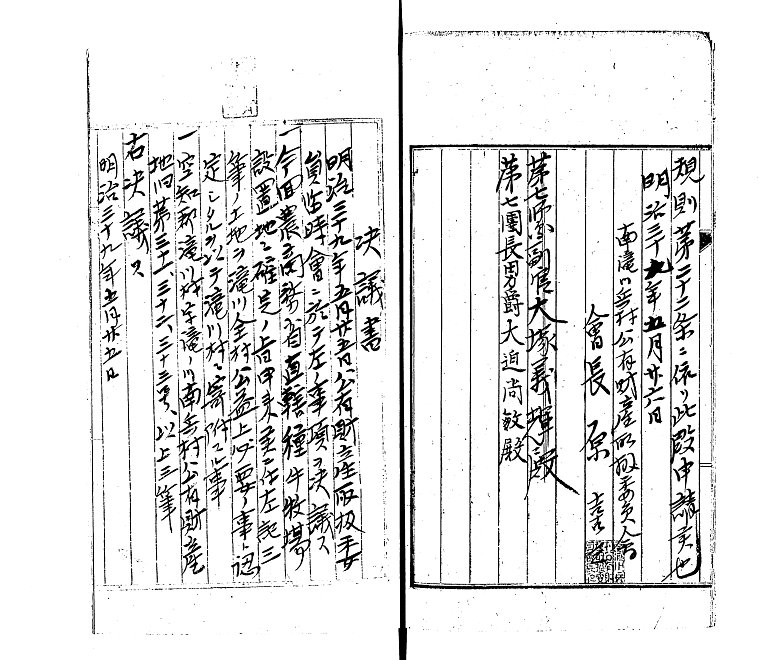 規則第二十二条ニ依リ此段申請妄也
明治三十九年五月廿六日
南滝川兵村公有財産取扱委員会
会長 原 喜
第七師団副官大塚義揮殿
第七団長男爵大迫尚敏殿
決議書
明治三十九年五月廿五日公有財産取扱委
員臨時會ニ於テ左ノ事項ヲ決議ス
一今回農商務省直轄種牛牧場
設置地ニ確定ノ旨申来候ニ付左記三
筆ノ土地ヲ滝川全村公益上必要ノ事ト認
定シタルヲ以テ滝川村ニ寄附スル事
一空知郡滝川村字滝川南兵村公有財産
地四第三十一、三十二、三十三号、以上三筆
右決議ス
明治三十九年五月廿五日